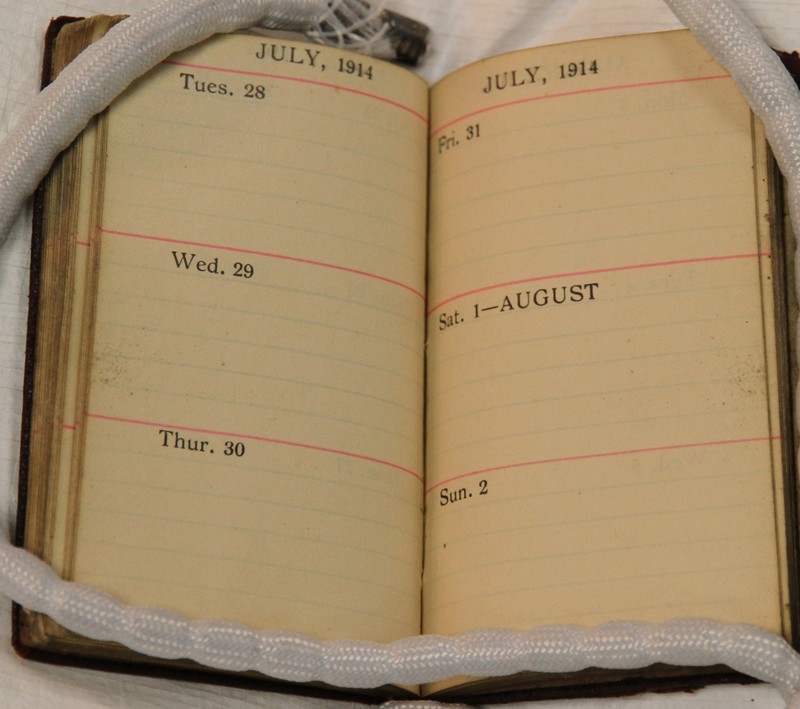 JULY, 1914
Tues. 28
Wed. 29
Thur. 30
JULY, 1914
Fri. 31
Sat. 1—AUGUST
Sun. 2